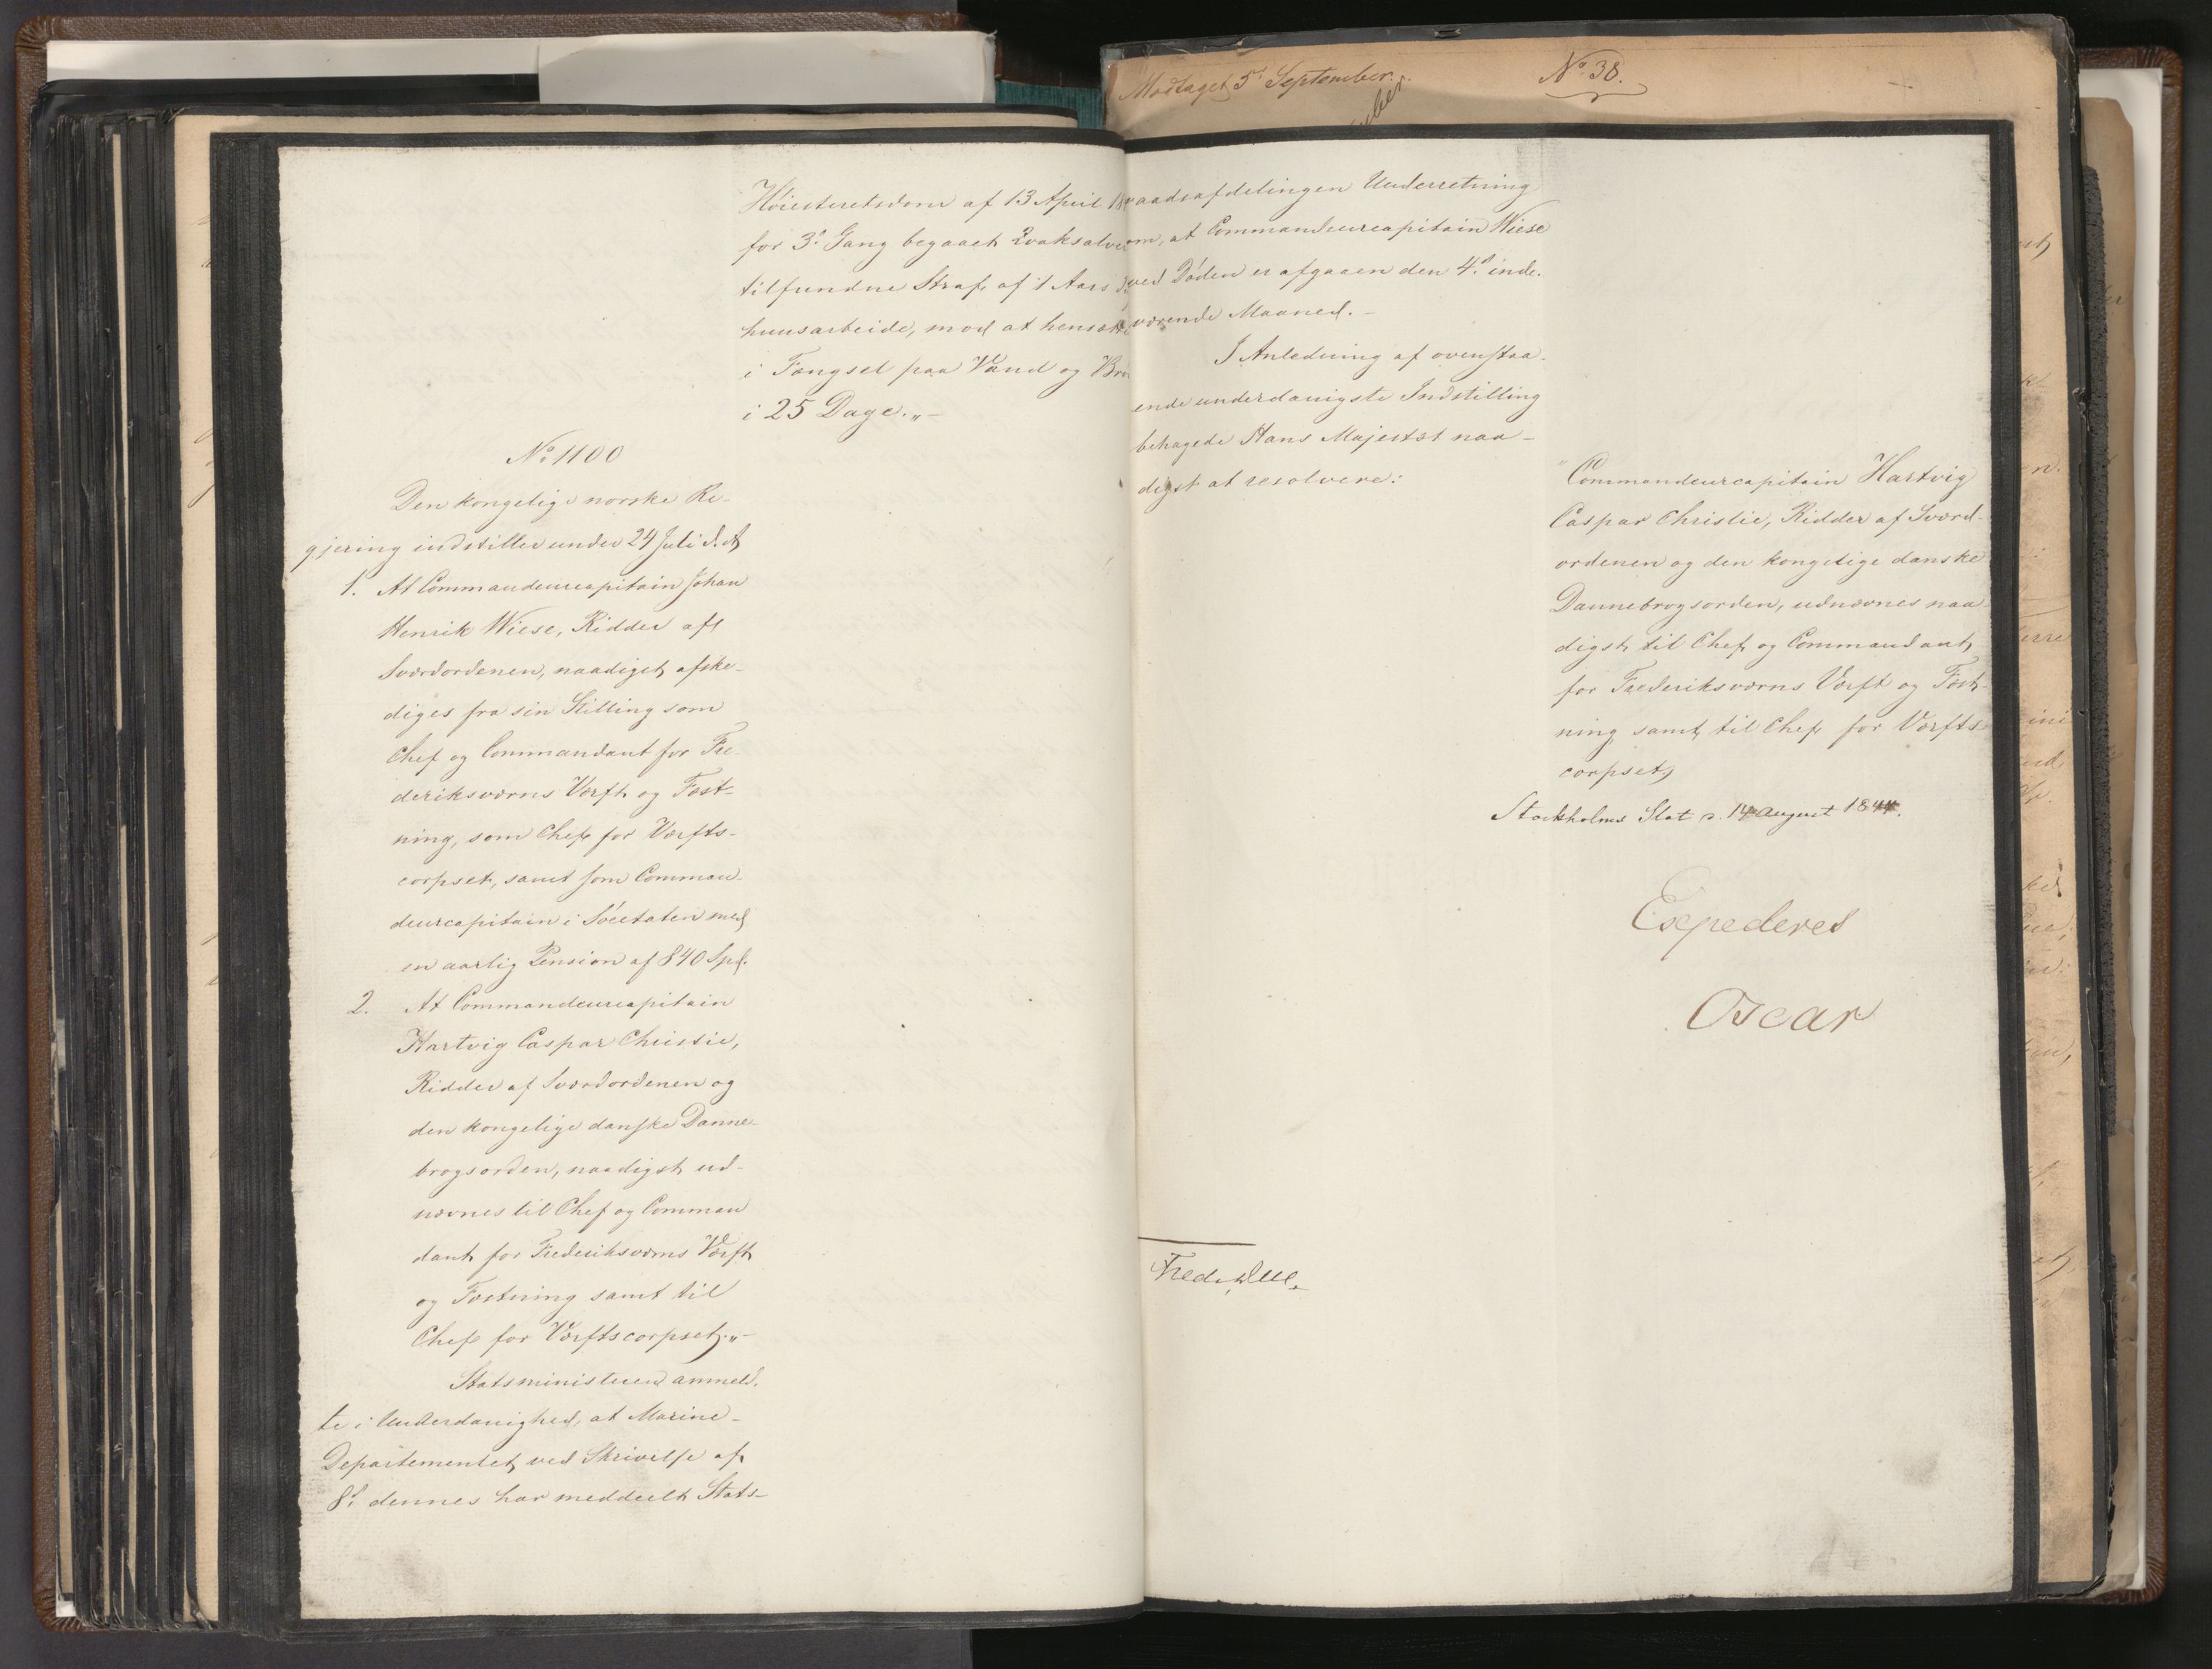 Høiesteretsdom af 13 April 18
for 3.d Gang begaaet Qvaksalve
tilfundne Straf, af 1 Aars
huusarbeide, mod at hensætte
i Fængsel paa Vand og Brø
i 25 Dage."-
No 1100
Den kongelige norske Re-
gjering indstiller under 24 Juli d. A.
1. At Commandeurcapitain Johan
Henrik Wiese, Ridder af
Sværdordenen, naadigst afske-
diges fra sin Stilling som
Chef og Commandant for Fre-
deriksværns Værft og Fæst-
ning, som Chef for Værfts-
corpset, samt som Comman-
deurcapitain i Søeetaten med
en aarlig Pension af 840 Spd.
2. At Commandeurcapitain
Hartvig Caspar Christie,
Ridder af Sværdordenen og
den kongelige danske Danne-
brogsorden, naadigst ud-
nævnes til Chef og Comman
dant for Frederiksværns Værft
og Fæstning samt til
Chef for Værftscorpset."-
Statsministeren anmeld-
te i Underdanighed, at Marine-
Departementet ved Skrivelse af
8.d dennes har meddeelt Stats-
Modtaget 5te September.
No 38.
raadsafdelingen Underretning
om, at Commandeurcapitain Wiese
ved Døden er afgaaen den 4.d inde-
værende Maaned. -
I Anledning af ovenstaa-
ende underdanigste Indstilling
behagede Hans Majestæt naa-
digst at resolvere:
"Commandeurcapitain Hartvig
Caspar Christie, Ridder af Sværd-
ordenen og den kongelige danske
Dannebrogsorden, udnævnes naa
digst til Chef og Commandant
for Frederiksværns Værft og Fæst-
ning samt til Chef for Værfts-
corpset."
Stockholms Slot d. 14 August 1844.
Expederes
Oscar
Fred. Due